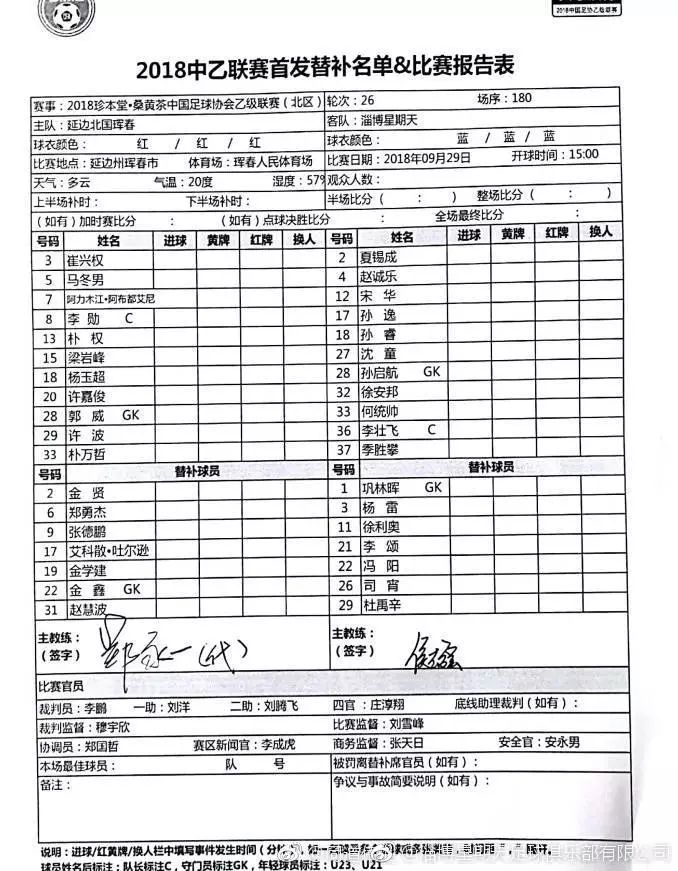 2018中国足协乙级联赛
2018中乙联赛首发替补名单&比赛报告表
赛事：2018珍本堂•桑黄茶中国足球协会乙级联赛（北区） 轮次：26 场序：180
主队：延边北国珲春 客队：淄博星期天
球衣颜色： 红 / 红 / 红 球衣颜色： 蓝 / 蓝 / 蓝
比赛地点：延边州珲春市 体育场：珲春人民体育场 比赛日期：2018年09月29日 开球时间：15:00
天气：多云 气温：20度 湿度：57% 观众人数：
上半场补时： 下半场补时： 半场比分（ ： ） 整场比分（ ： ）
（如有）加时赛比分 ： （如有）点球决胜比分 ： 全场最终比分 ：
号码 姓名 进球 黄牌 红牌 换人 号码 姓名 进球 黄牌 红牌 换人
3 崔兴权 2 夏锡成
5 马冬男 4 赵诚乐
7 阿力木江•阿布都艾尼 12 宋 华
8 李 勋 C 17 孙 逸
13 朴 权 18 孙 睿
15 梁岩峰 27 沈 童
18 杨玉超 28 孙启航 GK
20 许嘉俊 32 徐安邦
28 郭 威 GK 33 何统帅
29 许 波 36 李壮飞 C
33 朴万哲 37 季胜攀
号码 替补球员 号码 替补球员
2 金 贤 1 巩林晖 GK
6 郑勇杰 3 杨 雷
9 张德鹏 11 徐利奥
17 艾科散•吐尔逊 21 李 颂
19 金学建 22 冯 阳
22 金 鑫 GK 26 司 宵
31 赵慧波 29 杜禹辛
主教练： 主教练：
（签字） 郑永一（代） （签字）
比赛官员
裁判员：李鹏 一助：刘洋 二助：刘腾飞 四官：庄淳翔 底线助理裁判（如有）：
裁判监督：穆宇欣 比赛监督：刘雪峰
协调员：郑国哲 赛区新闻官：李成虎 商务监督：张天日 安全官：安永男
本场最佳球员： 队 号 被罚离替补席官员（如有）：
备注： 争议与事故简要说明（如有）：
说明：进球/红黄牌/换人栏中填写事件发生时间（分钟）
球员姓名后标注：队长标注C，守门员标注GK，年轻球员标注：U23、U21